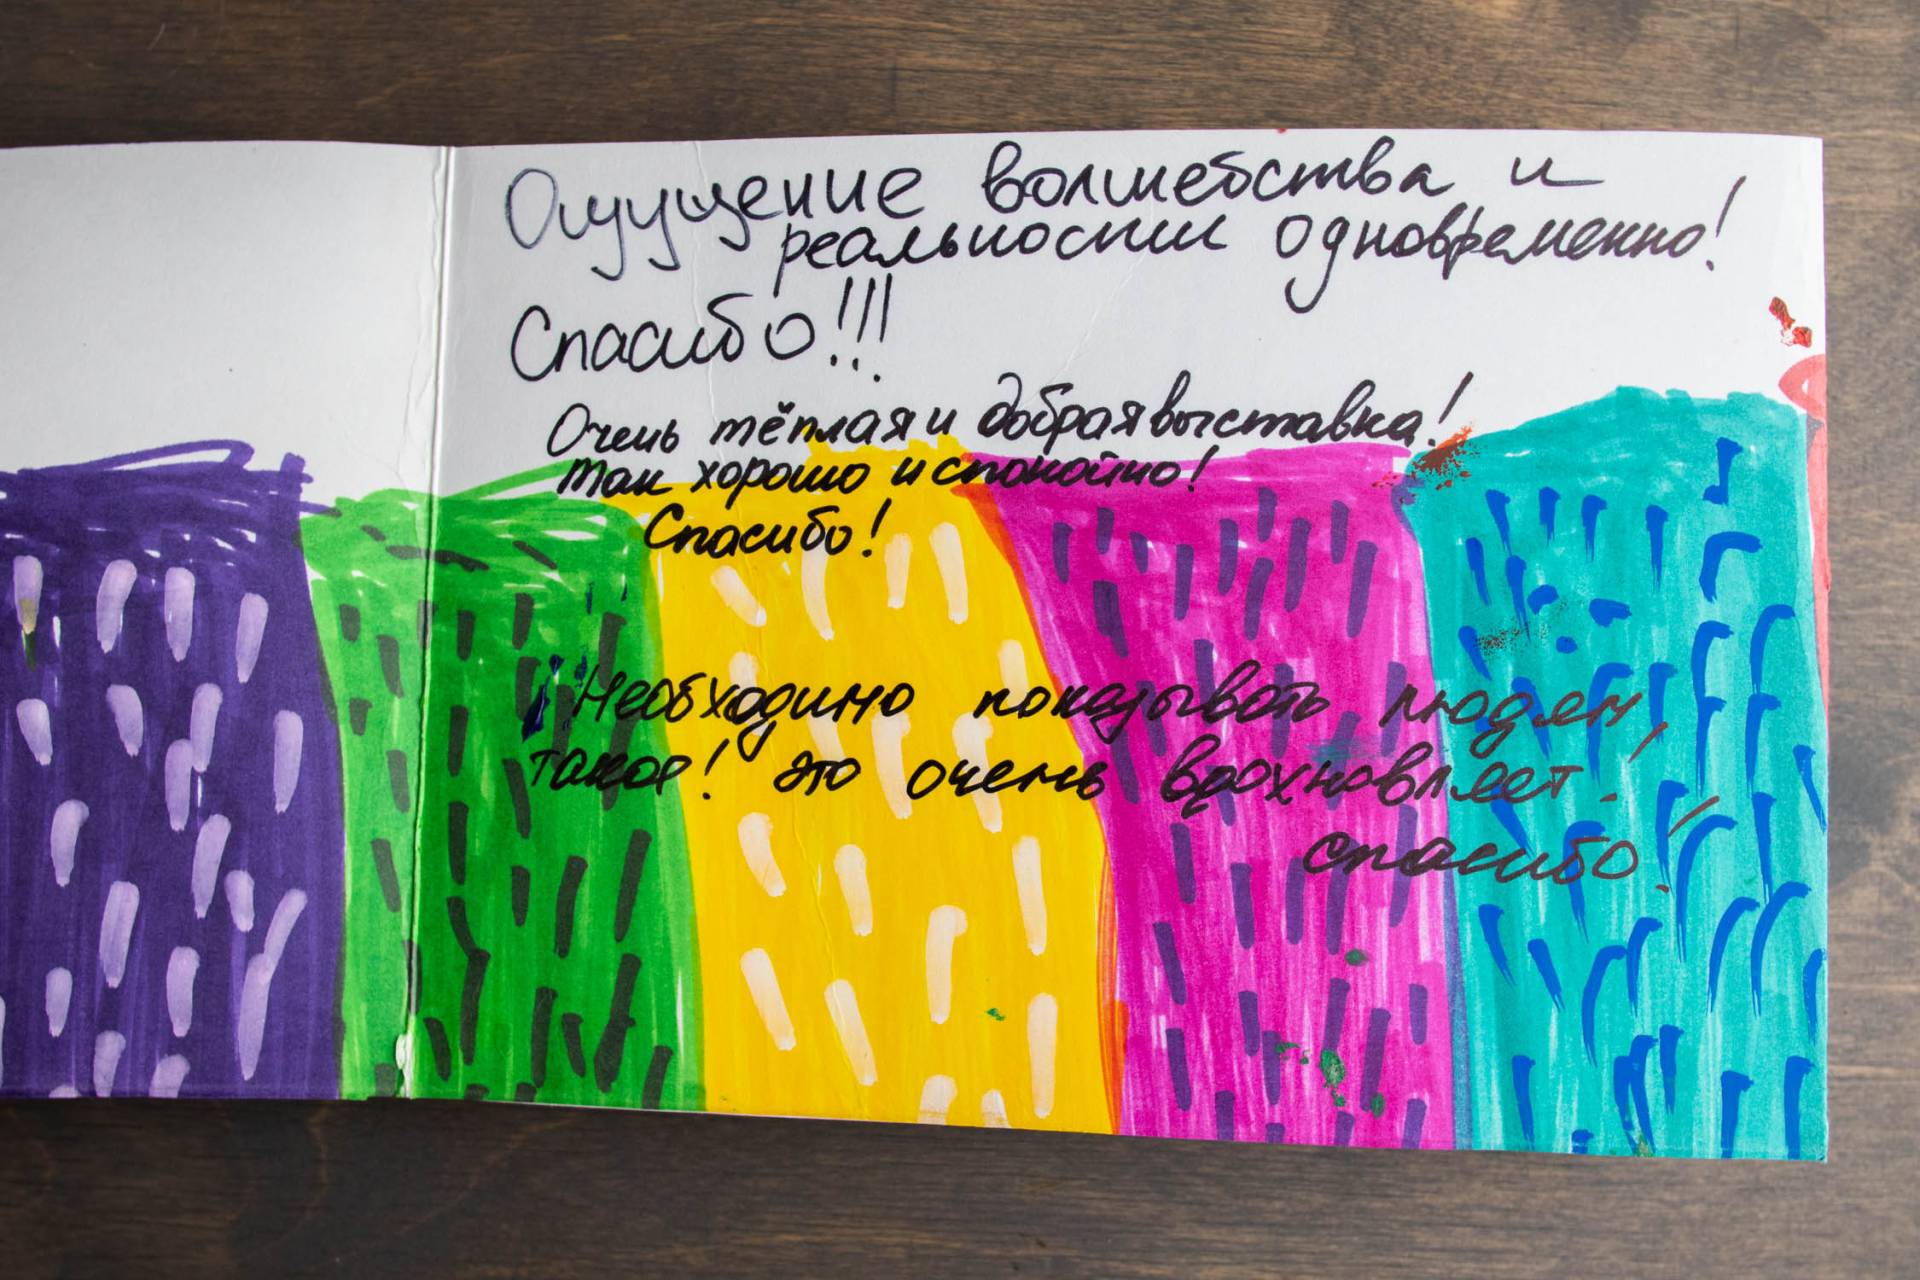 Ощущение волшебства и
реальности одновременно!
Спасибо!!!
Очень тёплая и добрая выставка!
так хорошо и спокойно!
Спасибо!
Необходимо показывать людям,
такое! это очень вдохновляет!
спасибо!